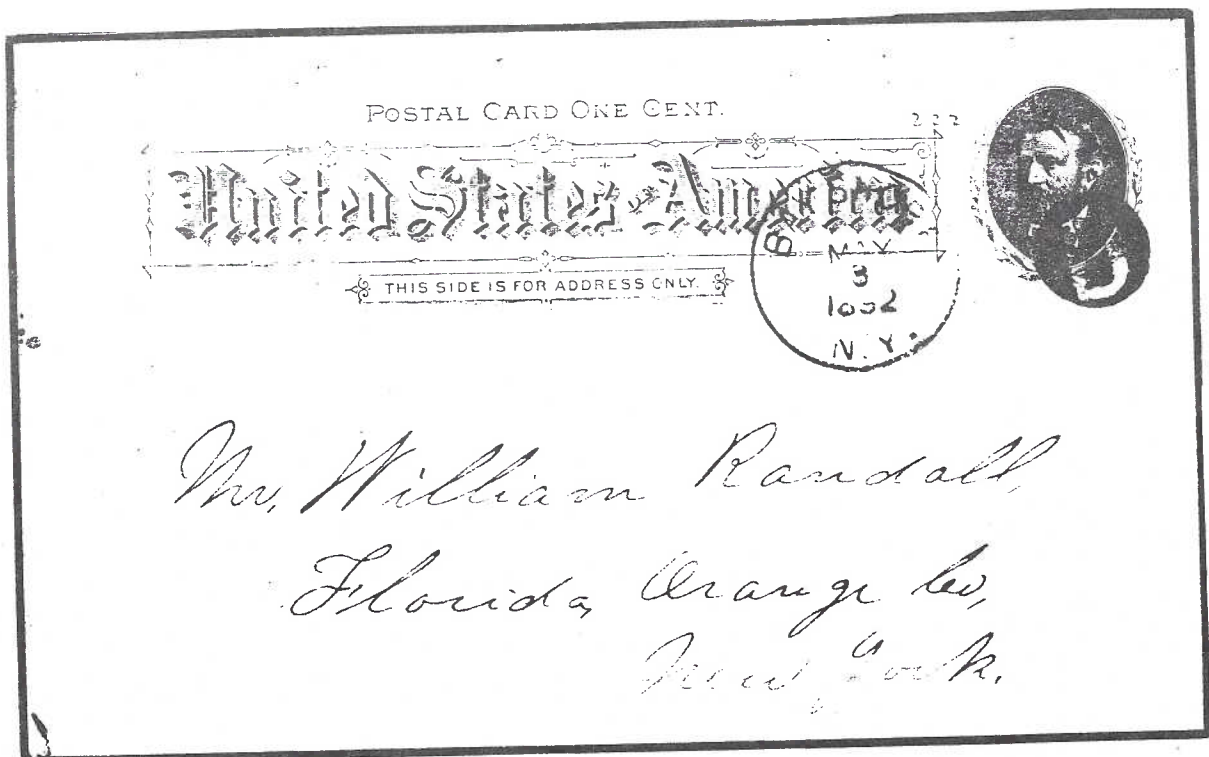 POSTAL CARD ONE CENT.
United States of America
THIS SIDE IS FOR ADDRESS ONLY.
3
N.Y.
Mr. William Randall,
Florida, Orange Co,
New York.